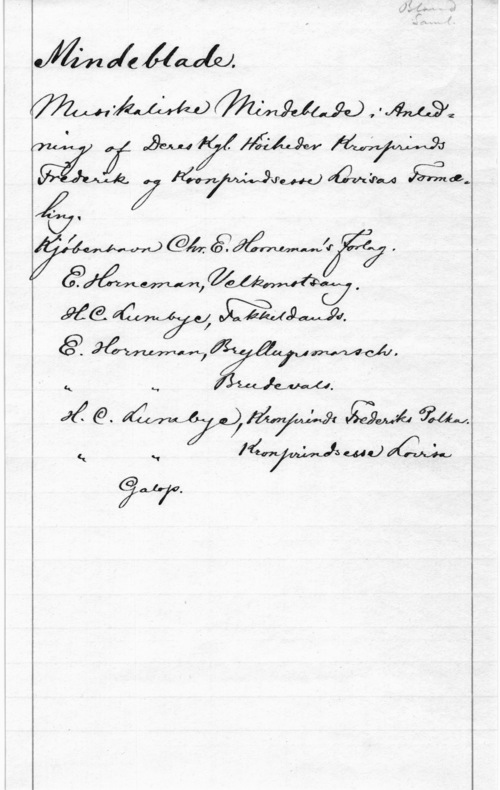 Bland
Saml.
Mindeblade.
Musikaliske Mindeblade i Anled=
ning af Deres Kgl. Höiheder Kronprinds
Frederik og Kronprindsesse Lovisas Formæ-
ling.
Kjöbenhavn Chr. E. Horneman's Forlag.
E. Horneman, Velkomstsang.
H. C. Lumbye, Fakkeldands.
E. Horneman, Bryllupsmarsch.
" " Brudevals.
H. C. Lumbye, Kronprinds Frederiks Polka.
" " Kronprindsesse Lovisa
Galop.